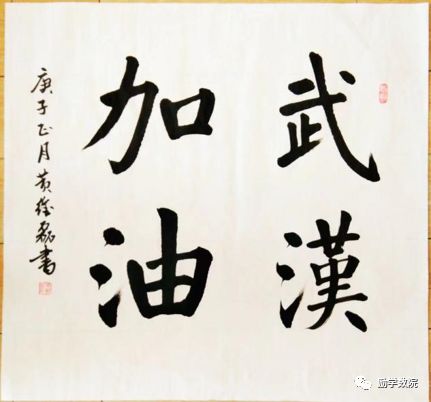 武漢
加油
庚子正月黄絳磊書
励学敦院